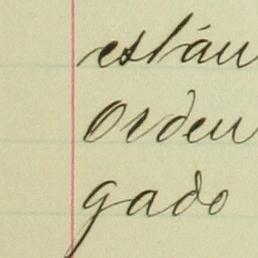 están
Orden
gado